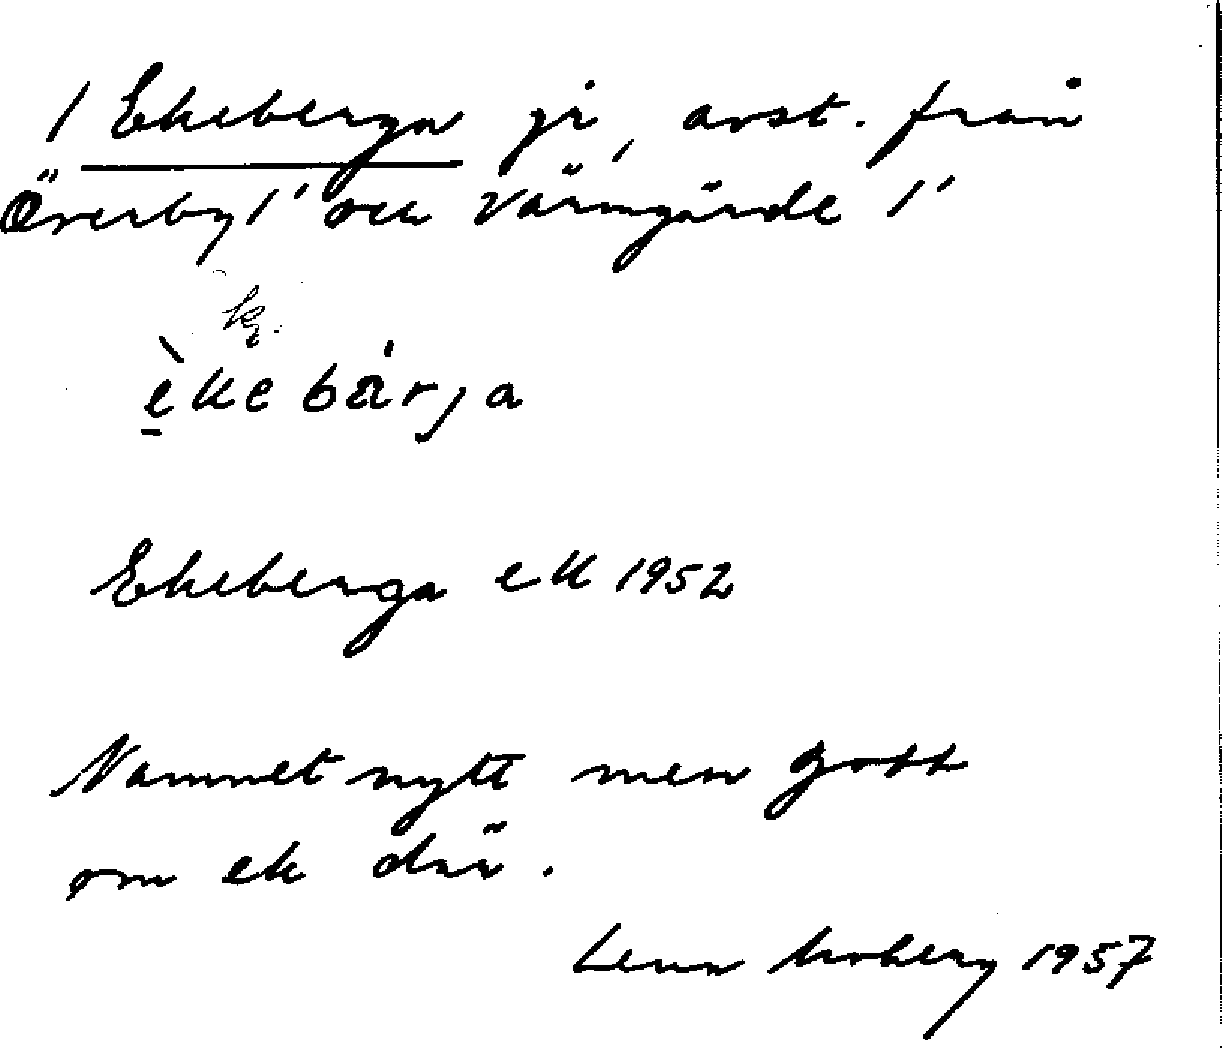 1 Ekeberga gd, avst. från
Överby 1' och Värmgärde 1'
k.
èkebärja
Ekeberga ek 1952
Namnet nytt men gott
om ek där.
Lena Moberg 1957